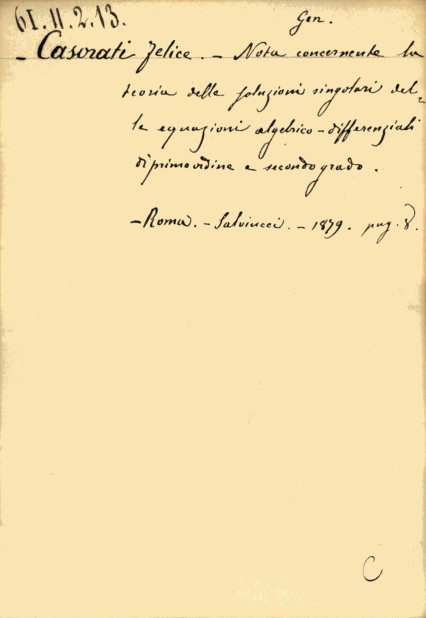 61.11.2.13.
Gen.
- Casorati Felice. - Nota concernente la
teoria delle soluzioni singolari del=
le equazioni algebrico-differenziali
di primo ordine e secondo grado.
- Roma. - Salviucci. - 1879. pag. 8.
C